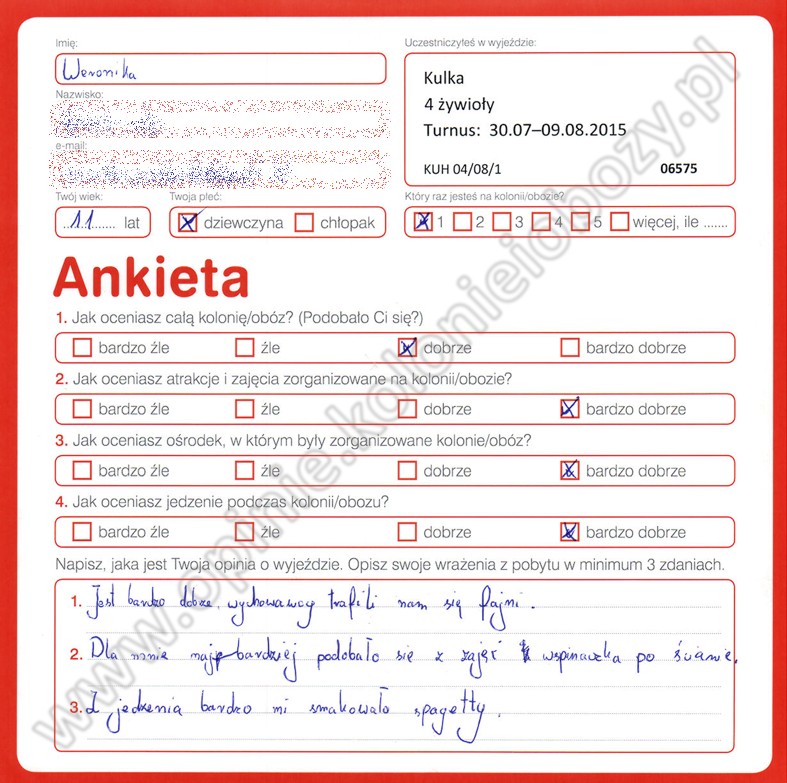 Imię:
Weronika
Uczestniczyłeś w wyjeździe:
Kulka
4 żywioły
Turnus: 30.07–09.08.2015
KUH 04/08/1 06575
Nazwisko:
e-mail:
Twój wiek:
11 lat
Twoja płeć:
dziewczyna chłopak
Który raz jesteś na kolonii/obozie?
1 2 3 4 5 więcej, ile .......
Ankieta
1. Jak oceniasz całą kolonię/obóz? (Podobało Ci się?)
bardzo źle źle dobrze bardzo dobrze
2. Jak oceniasz atrakcje i zajęcia zorganizowane na kolonii/obozie?
bardzo źle źle dobrze bardzo dobrze
3. Jak oceniasz ośrodek, w którym były zorganizowane kolonie/obóz?
bardzo źle źle dobrze bardzo dobrze
4. Jak oceniasz jedzenie podczas kolonii/obozu?
bardzo źle źle dobrze bardzo dobrze
Napisz, jaka jest Twoja opinia o wyjeździe. Opisz swoje wrażenia z pobytu w minimum 3 zdaniach.
1. Jest bardzo dobrze, wychowawcy trafili nam się fajni.
2. Dla mnie najbardziej podobało się z zajęć wspinaczka po ścianie.
3. Z jedzenia bardzo mi smakowało spagetty.
www.opinie.kolonieiobozy.pl